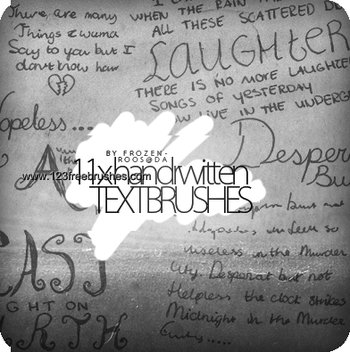 There are many
Things I wuma
Say to you but I
don't know how
WHEN THE RAIN
ALL THESE SCATTERED D
LAUGHTER
THERE IS NO MORE LAUGHTE
SONGS OF YESTERDAY
LIVE IN THE UNDERG
opeless...
BY FROZEN-
ROOS@DA
11xhandrwitten
www.123freebrushes.com
TEXTBRUSHES
Desper
Bu
but not
useless in the Murder
City. Desperat but not
Helpless the clock strikes
Midnight in the Murder
CAST
GHT ON
RTH